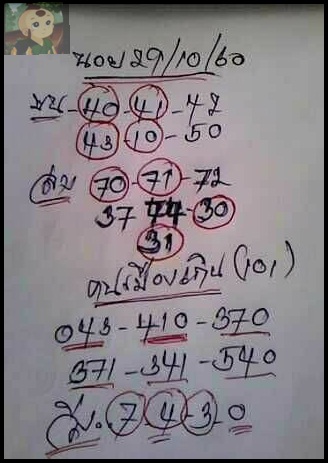 หวย 29/10/60
บน - 40 - 41 - 42
43 - 10 - 50
ล่าง 70 - 71 - 72
37 30
31
(101)
043 - 410 - 370
371 - 341 - 540
7 4 3 0